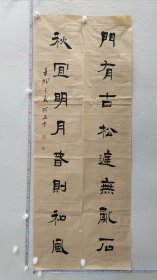 門有古松庭無亂石
秋宜明月春則和風